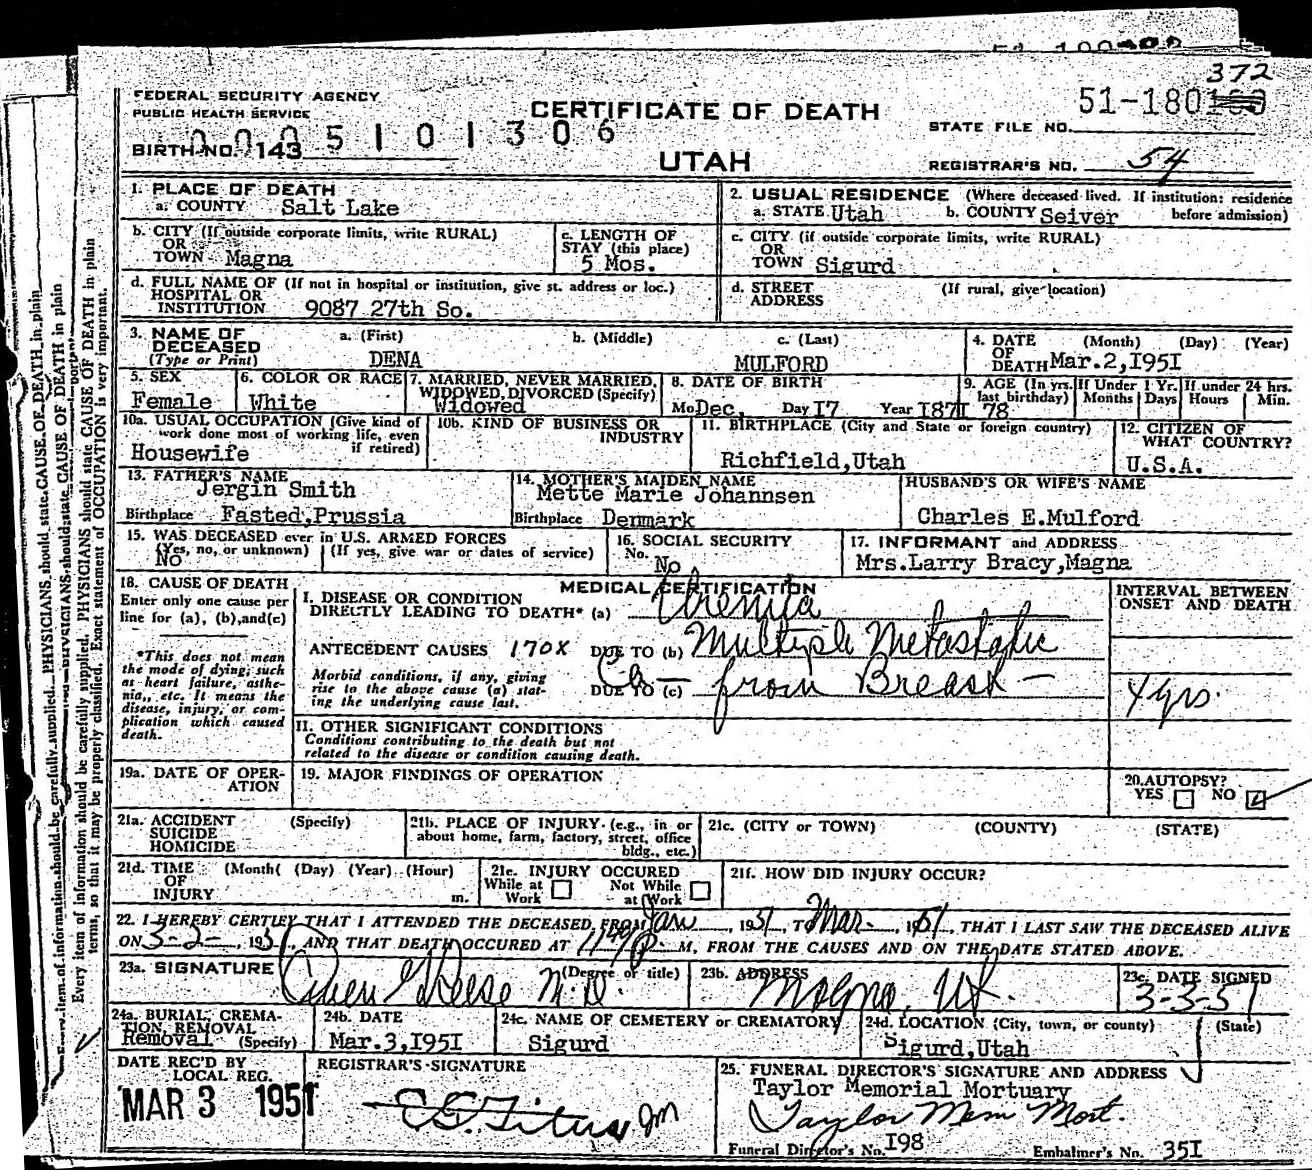 372
FEDERAL SECURITY AGENCY
PUBLIC HEALTH SERVICE
CERTIFICATE OF DEATH
UTAH
STATE FILE NO. 51-180
BIRTH NO. 143
0005101306
REGISTRAR'S NO. 54
1. PLACE OF DEATH
a. COUNTY Salt Lake
b. CITY (If outside corporate limits, write RURAL)
OR
TOWN Magna
c. LENGTH OF
STAY (this place)
5 Mos.
d. FULL NAME OF (If not in hospital or institution, give st. address or loc.)
HOSPITAL OR
INSTITUTION 9087 27th So.
2. USUAL RESIDENCE (Where deceased lived. If institution: residence
a. STATE Utah b. COUNTY Seiver before admission)
c. CITY (if outside corporate limits, write RURAL)
OR
TOWN Sigurd
d. STREET (If rural, give location)
ADDRESS
3. NAME OF DECEASED
(Type or Print)
a. (First) b. (Middle) c. (Last)
DENA MULFORD
4. DATE (Month) (Day) (Year)
OF
DEATH Mar.2,1951
5. SEX
Female
6. COLOR OR RACE
White
7. MARRIED, NEVER MARRIED,
WIDOWED, DIVORCED (Specify)
Widowed
8. DATE OF BIRTH
Mo Dec. Day 17 Year
9. AGE (In yrs. last birthday)
78
If Under 1 Yr.
Months Days
If under 24 hrs.
Hours Min.
10a. USUAL OCCUPATION (Give kind of
work done most of working life, even
if retired)
Housewife
10b. KIND OF BUSINESS OR
INDUSTRY
11. BIRTHPLACE (City and State or foreign country)
Richfield,Utah
12. CITIZEN OF
WHAT COUNTRY?
U.S.A.
13. FATHER'S NAME
Jergin Smith
Birthplace Fasted,Prussia
14. MOTHER'S MAIDEN NAME
Mette Marie Johannsen
Birthplace Denmark
HUSBAND'S OR WIFE'S NAME
Charles E.Mulford
15. WAS DECEASED ever in U.S. ARMED FORCES
(Yes, no, or unknown) (If yes, give war or dates of service)
No
16. SOCIAL SECURITY
No. No
17. INFORMANT and ADDRESS
Mrs.Larry Bracy,Magna
18. CAUSE OF DEATH
Enter only one cause per
line for (a), (b), and (c)
*This does not mean
the mode of dying, such
as heart failure, asthe-
nia, etc. It means the
disease, injury, or com-
plication which caused
death.
MEDICAL CERTIFICATION
I. DISEASE OR CONDITION
DIRECTLY LEADING TO DEATH* (a) Uremia
ANTECEDENT CAUSES 170X DUE TO (b) Multiple Metastatic
Morbid conditions, if any, giving
rise to the above cause (a) stat-
ing the underlying cause last.
DUE TO (c) Ca — from Breast —
INTERVAL BETWEEN
ONSET AND DEATH
4 yrs.
II. OTHER SIGNIFICANT CONDITIONS
Conditions contributing to the death but not
related to the disease or condition causing death.
19a. DATE OF OPER-
ATION
19. MAJOR FINDINGS OF OPERATION
20. AUTOPSY?
YES NO
21a. ACCIDENT (Specify)
SUICIDE
HOMICIDE
21b. PLACE OF INJURY. (e.g., in or
about home, farm, factory, street, office
bldg., etc.)
21c. (CITY or TOWN) (COUNTY) (STATE)
21d. TIME (Month( (Day) (Year) (Hour)
OF
INJURY m.
21e. INJURY OCCURED
While at Work Not While at Work
21f. HOW DID INJURY OCCUR?
22. I HEREBY CERTIFY THAT I ATTENDED THE DECEASED, FROM Jan, 1951, TO Mar., 1951, THAT I LAST SAW THE DECEASED ALIVE
ON 3-2-, 1951, AND THAT DEATH OCCURED AT M., FROM THE CAUSES AND ON THE DATE STATED ABOVE.
23a. SIGNATURE (Degree or title)
Owen G Reese M.D.
23b. ADDRESS
Magna, Ut.
23c. DATE SIGNED
3-3-51
24a. BURIAL, CREMA-
TION, REMOVAL
Removal (Specify)
24b. DATE
Mar.3,1951
24c. NAME OF CEMETERY or CREMATORY
Sigurd
24d. LOCATION (City, town, or county) (State)
Sigurd,Utah
DATE REC'D BY
LOCAL REG.
MAR 3 1951
REGISTRAR'S SIGNATURE
25. FUNERAL DIRECTOR'S SIGNATURE AND ADDRESS
Taylor Memorial Mortuary
Taylor Mem Mort.
Funeral Director's No. 198 Embalmer's No. 351
Every item of information should be carefully supplied. PHYSICIANS should state CAUSE OF DEATH in plain
terms, so that it may be properly classified. Exact statement of OCCUPATION is very important.